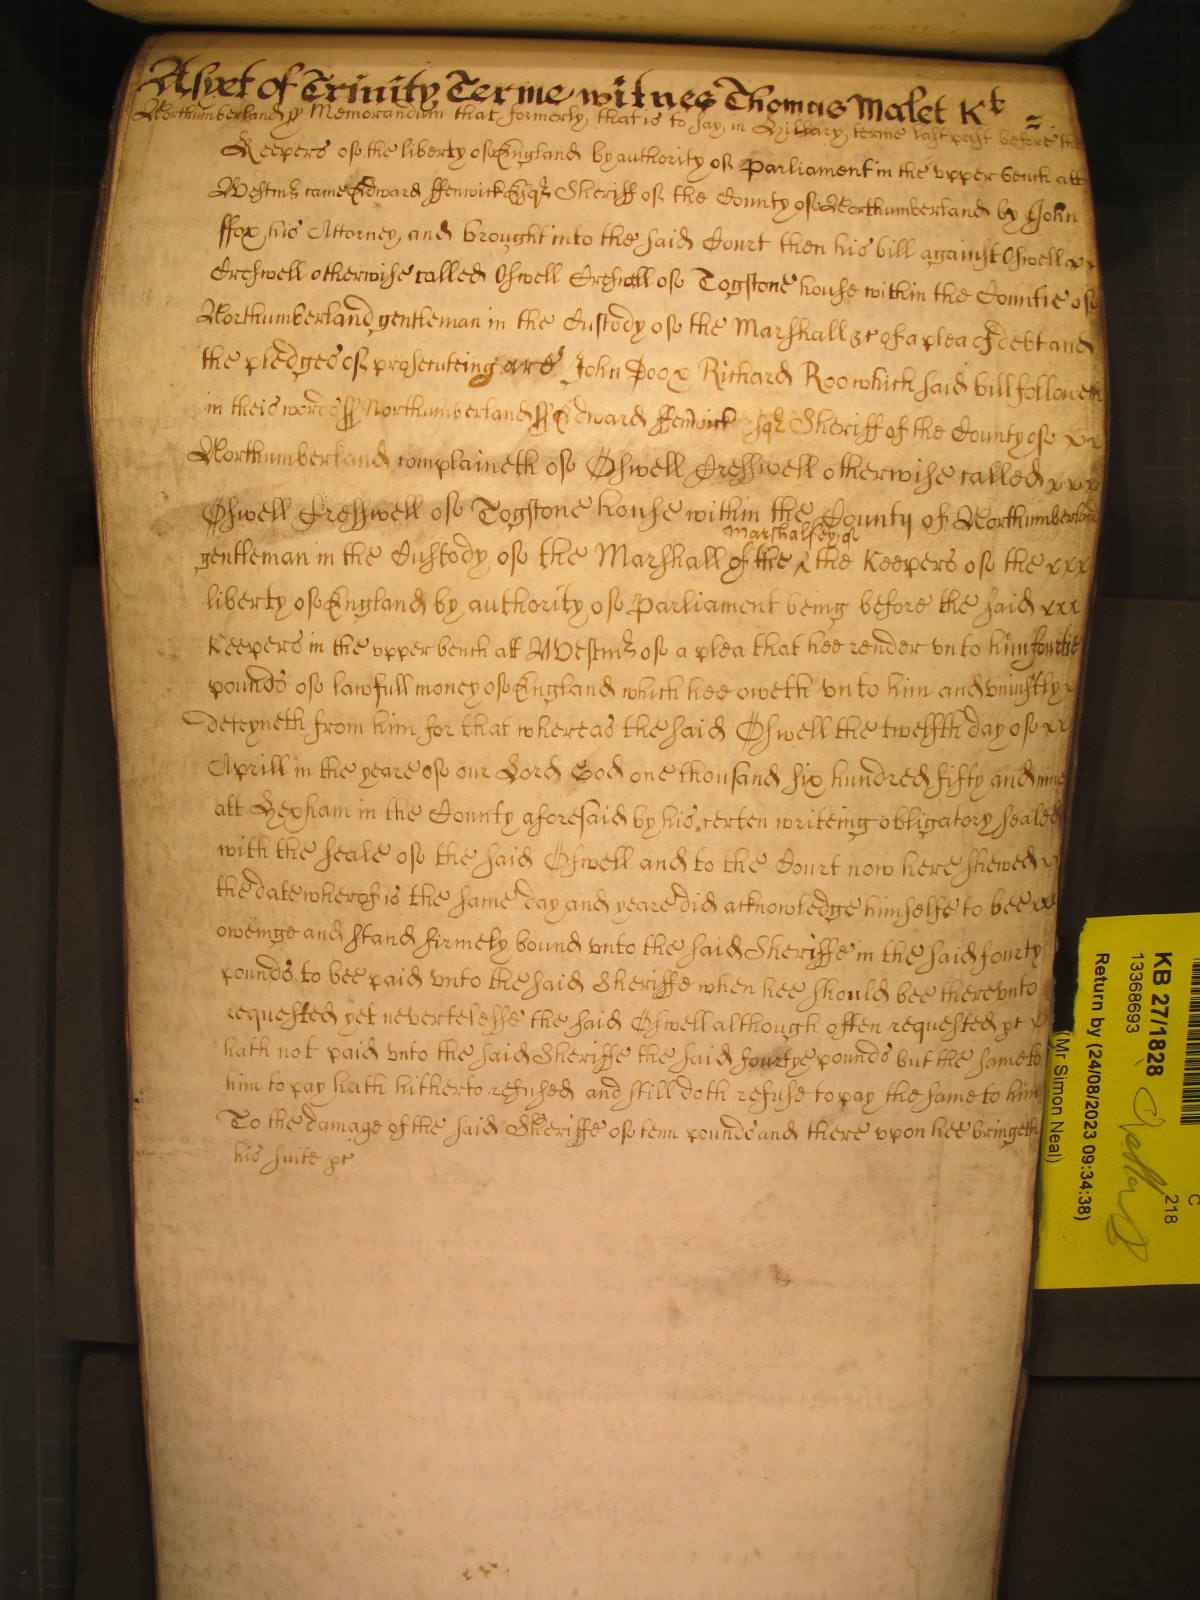 As yet of Trinity Terme witnes Thomas Malet Kt
Northumberland ss Memorandum that formerly, that is to say, in Hillary, terme last past before the
Keepers of the liberty of England by authority of Parliament in the vpper bench att
Westmr came Edward ffenwick Esqr Sheriff of the County of Northumberland by John
ffox, his Attorney, and brought into the said Court then his bill against Oswell x x
Creswell otherwise called Oswell Creswell of Togstone house within the Countie of
Northumberland gentleman in the Custody of the Marshall &c of a plea of debt and
the pledges of prosecuteing are John Doo x Richard Roo which said bill followeth
in theis words ss Northumberland ss Edward ffenwick Esqr Sheriff of the County of x x
Northumberland complaineth of Oswell Cresswell otherwise called x x x
Oswell Cresswell of Togstone house within the County of Northumberland
Marshalsey of
gentleman in the Custody of the Marshall of the the Keepers of the x x x
liberty of England by authority of Parliament being before the said x x x
Keepers in the vpper bench att Westmr of a plea that hee render vnto him fourtie
pounds of lawfull money of England which hee oweth vnto him and vniustly x
deteyneth from him for that whereas the said Oswell the twelfth day of x x
Aprill in the yeare of our Lord God one thousand six hundred fifty and nine
att Hexham in the County aforesaid by his certen writeing obligatory sealed
with the seale of the said Oswell and to the Court now here shewed x
the date wherof is the same day and yeare did acknowledge himselfe to bee x x
oweinge and stand firmely bound vnto the said Sheriffe in the said fourty
pounds to bee paid vnto the said Sheriffe when hee should bee therevnto
requested yet nevertelesse the said Oswell although often requested &c x
hath not paid vnto the said Sheriffe the said fourtye pounds but the same to
him to pay hath hitherto refused and still doth refuse to pay the same to him
To the damage of the said Sheriffe of tenn pounds and there vpon hee bringeth
his suite &c
KB 27/1828
13368693
Return by (24/08/2023 09:34:38)
(Mr Simon Neal)
C
218